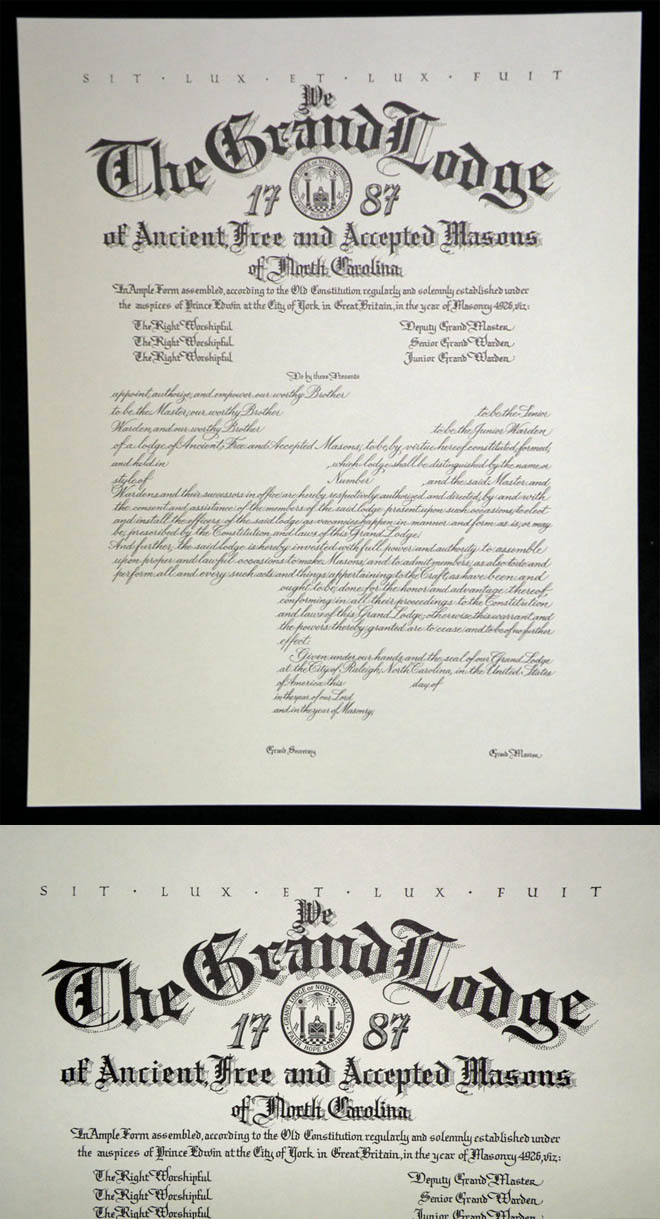 SIT · LUX · ET · LUX · FUIT
We
The Grand Lodge
GRAND LODGE OF NORTH CAROLINA
FAITH HOPE & CHARITY
17 87
of Ancient, Free and Accepted Masons
of North Carolina
In Ample Form assembled, according to the Old Constitution regularly and solemnly established under
the auspices of Prince Edwin at the City of York in Great Britain, in the year of Masonry 4926, viz:
The Right Worshipful Deputy Grand Master
The Right Worshipful Senior Grand Warden
The Right Worshipful Junior Grand Warden
Do by these Presents
appoint, authorize, and empower our worthy Brother
to be the Master; our worthy Brother to be the Senior
Warden, and our worthy Brother to be the Junior Warden
of a lodge of Ancient, Free and Accepted Masons, to be, by virtue hereof, constituted, formed,
and held in , which lodge shall be distinguished by the name or
style of Number , and the said Master and
Wardens and their successors in office are hereby respectively authorized and directed, by and with
the consent and assistance of the members of the said lodge present upon such occasions, to elect
and install the officers of the said lodge as vacancies happen, in manner and form as is, or may
be, prescribed by the Constitution and laws of this Grand Lodge.
And further, the said lodge is hereby invested with full power and authority to assemble
upon proper and lawful occasions to make Masons, and to admit members, as also to do and
perform all and every such acts and things appertaining to the Craft as have been and
ought to be done for the honor and advantage thereof,
conforming in all their proceedings to the Constitution
and laws of this Grand Lodge; otherwise this warrant and
the powers thereby granted are to cease and to be of no further
effect.
Given under our hands and the seal of our Grand Lodge
at the City of Raleigh, North Carolina, in the United States
of America this day of
in the year of our Lord
and in the year of Masonry,
Grand Secretary Grand Master
SIT · LUX · ET · LUX · FUIT
We
The Grand Lodge
GRAND LODGE OF NORTH CAROLINA
FAITH HOPE & CHARITY
17 87
of Ancient, Free and Accepted Masons
of North Carolina
In Ample Form assembled, according to the Old Constitution regularly and solemnly established under
the auspices of Prince Edwin at the City of York in Great Britain, in the year of Masonry 4926, viz:
The Right Worshipful Deputy Grand Master
The Right Worshipful Senior Grand Warden
The Right Worshipful Junior Grand Warden